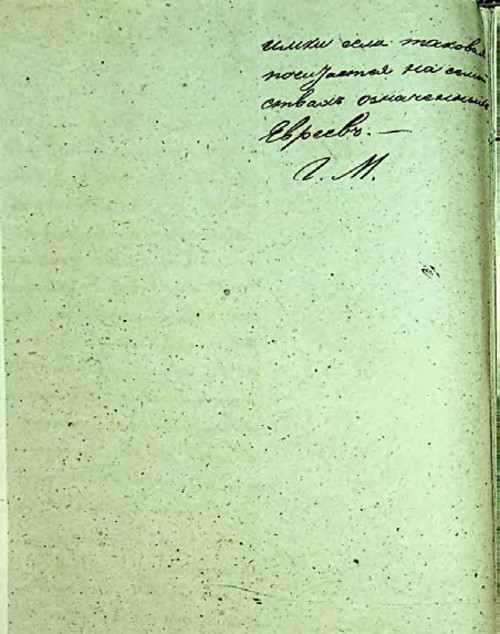 имки если таковая
посчитается на семей
ствахъ означенныхъ
Евреевъ. —
Г. М.